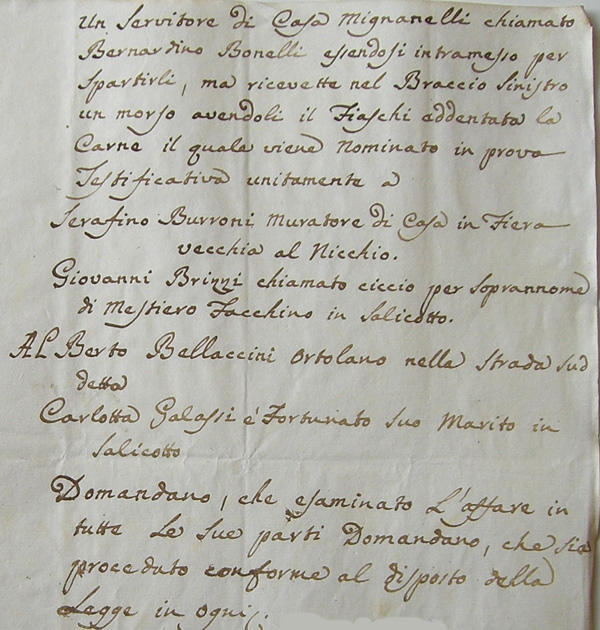 Un Servitore di Casa Mignanelli chiamato
Bernardino Bonelli essendosi intramesso per
Spartirli, ma ricevette nel Braccio Sinistro
un morso avendoli il Fiaschi addentata la
Carne il quale viene Nominato in prova
Testificativa unitamente a
Serafino Burroni Muratore di Casa in Fiera
vecchia al Nicchio.
Giovanni Brizzi chiamato ciccio per soprannome
di Mestiero Facchino in Salicotto.
ALBerto Bellaccini Ortolano nella Strada Sud
detta
Carlotta Galassi é Fortunato suo Marito in
Salicotto
Domandano, che esaminato L'affare in
tutte Le Sue parti Domandano, che sia
proceduto conforme al disposto della
Legge in ogni